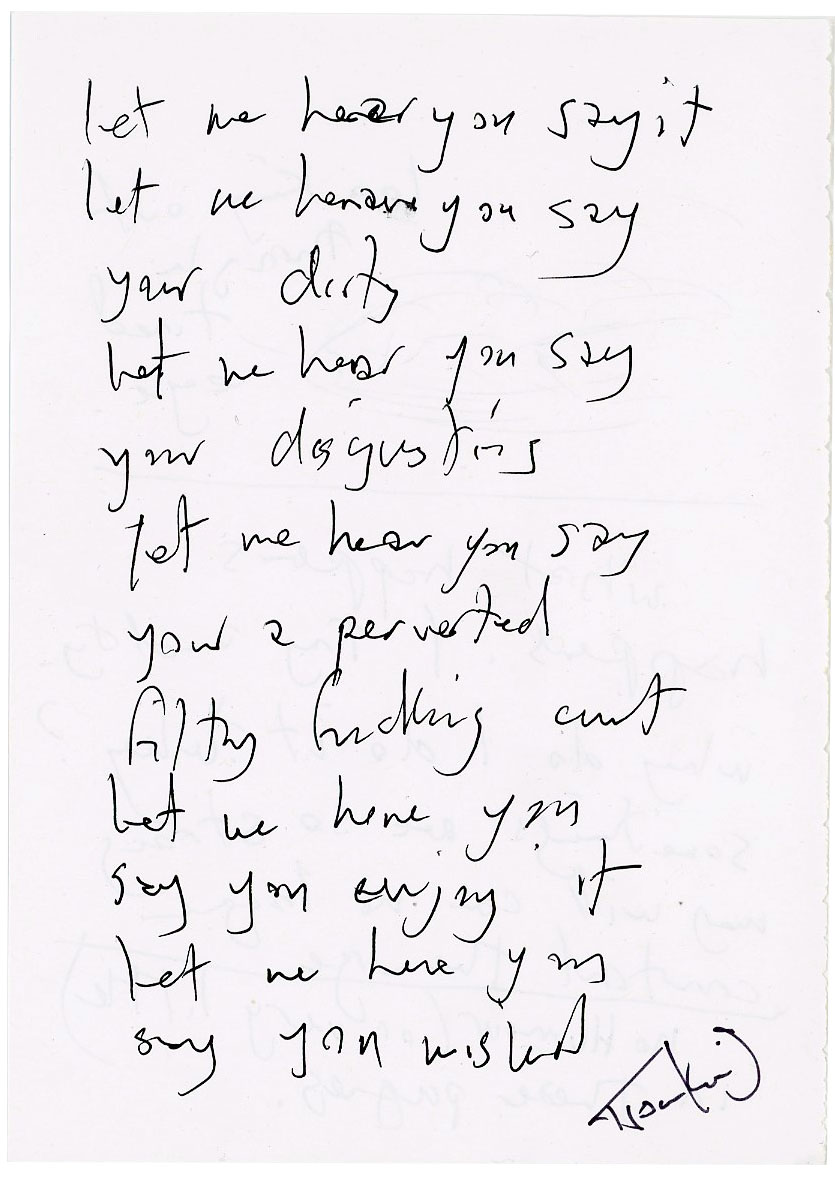 let me hear you say it
let me hear you say
your dirty
let me hear you say
your disgusting
let me hear you say
your a perverted
filthy fucking cunt
let me here you
say you enjoy it
let me here you
say you